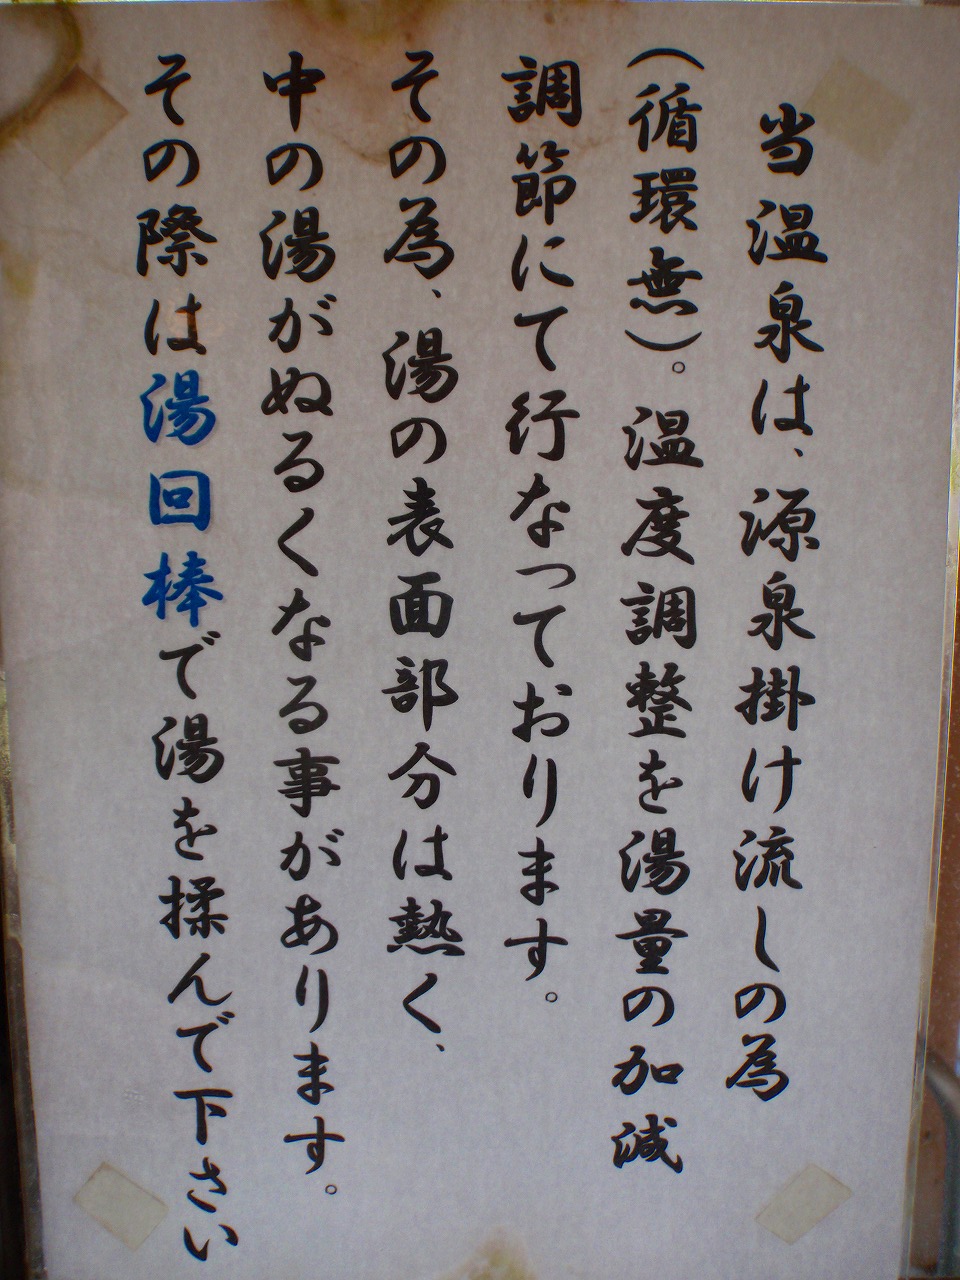 当温泉は、源泉掛け流しの為
（循環無）。温度調整を湯量の加減
調節にて行なっております。
その為、湯の表面部分は熱く、
中の湯がぬるくなる事があります。
その際は湯回棒で湯を揉んで下さい